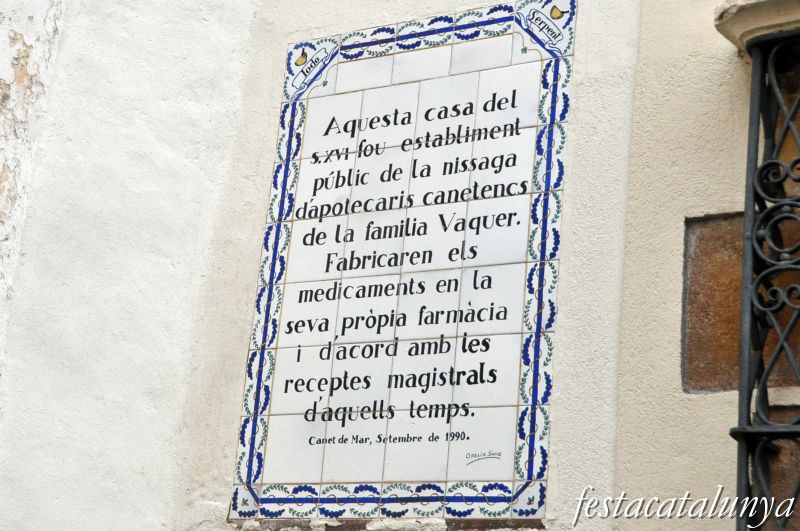 Iodo
Serpent
Aquesta casa del
s.XVI fou establiment
públic de la nissaga
d'apotecaris canetencs
de la familia Vaquer.
Fabricaren els
medicaments en la
seva pròpia farmàcia
i d'acord amb les
receptes magistrals
d'aquells temps.
Canet de Mar, Setembre de 1990.
OFELIA SANZ
festacatalunya